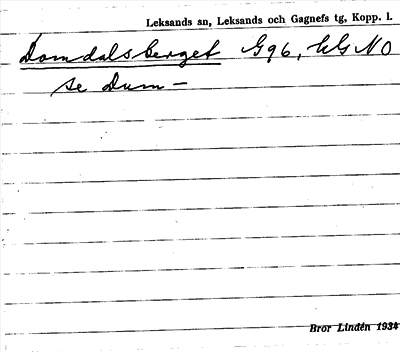 Leksands sn, Leksands och Gagnefs tg, Kopp. l.
Domdalsberget G96, NO
se Dum-
Bror Lindén 1934